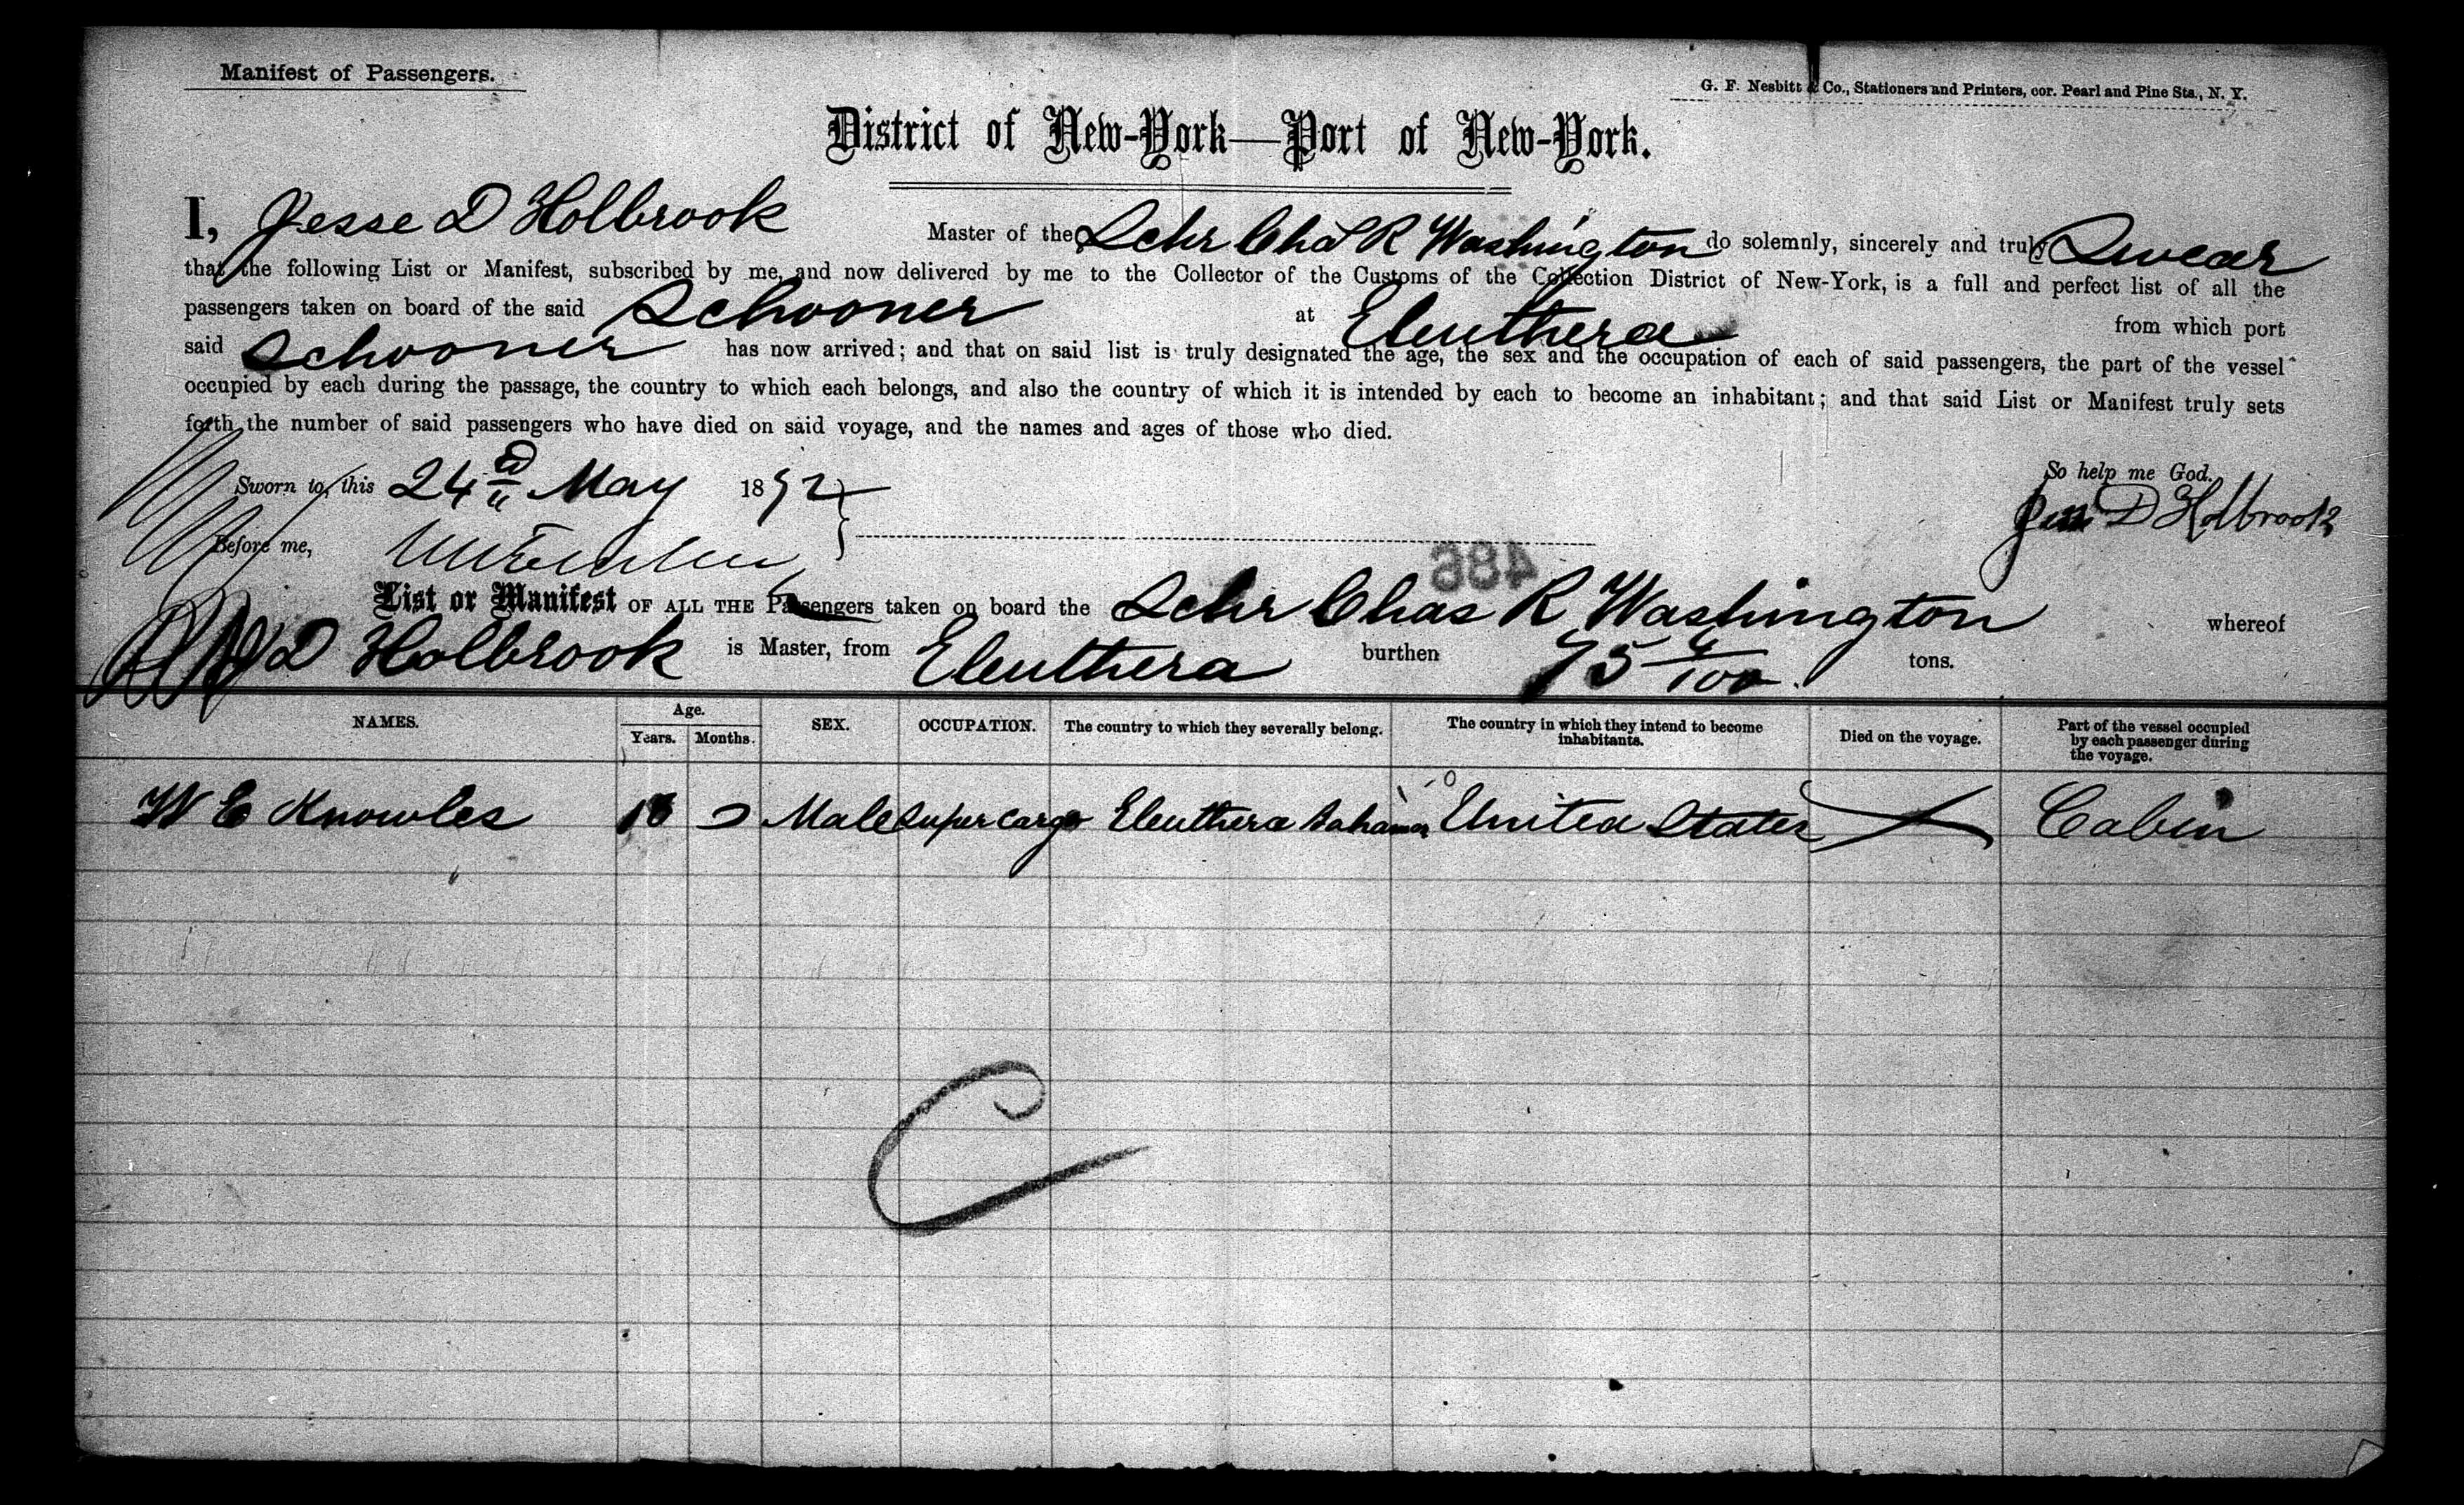 Manifest of Passengers.
G. F. Nesbitt & Co., Stationers and Printers, cor. Pearl and Pine Sts., N. Y.
District of New-York—Port of New-York.
I, Jesse D Holbrook Master of the Schr Chas R Washington do solemnly, sincerely and truly Swear
that the following List or Manifest, subscribed by me, and now delivered by me to the Collector of the Customs of the Collection District of New-York, is a full and perfect list of all the
passengers taken on board of the said Schooner at Eleuthera from which port
said Schooner has now arrived; and that on said list is truly designated the age, the sex and the occupation of each of said passengers, the part of the vessel
occupied by each during the passage, the country to which each belongs, and also the country of which it is intended by each to become an inhabitant; and that said List or Manifest truly sets
forth the number of said passengers who have died on said voyage, and the names and ages of those who died.
So help me God.
Sworn to, this 24 May 1892
Jesse D Holbrook
Before me,
486
List or Manifest OF ALL THE Passengers taken on board the Schr Chas R Washington whereof
D Holbrook is Master, from Eleuthera burthen tons.
NAMES. Age. Years. Months. SEX. OCCUPATION. The country to which they severally belong. The country in which they intend to become inhabitants. Died on the voyage. Part of the vessel occupied by each passenger during the voyage.
W E Knowles Male Supercargo Eleuthera Bahamas United States Cabin
C